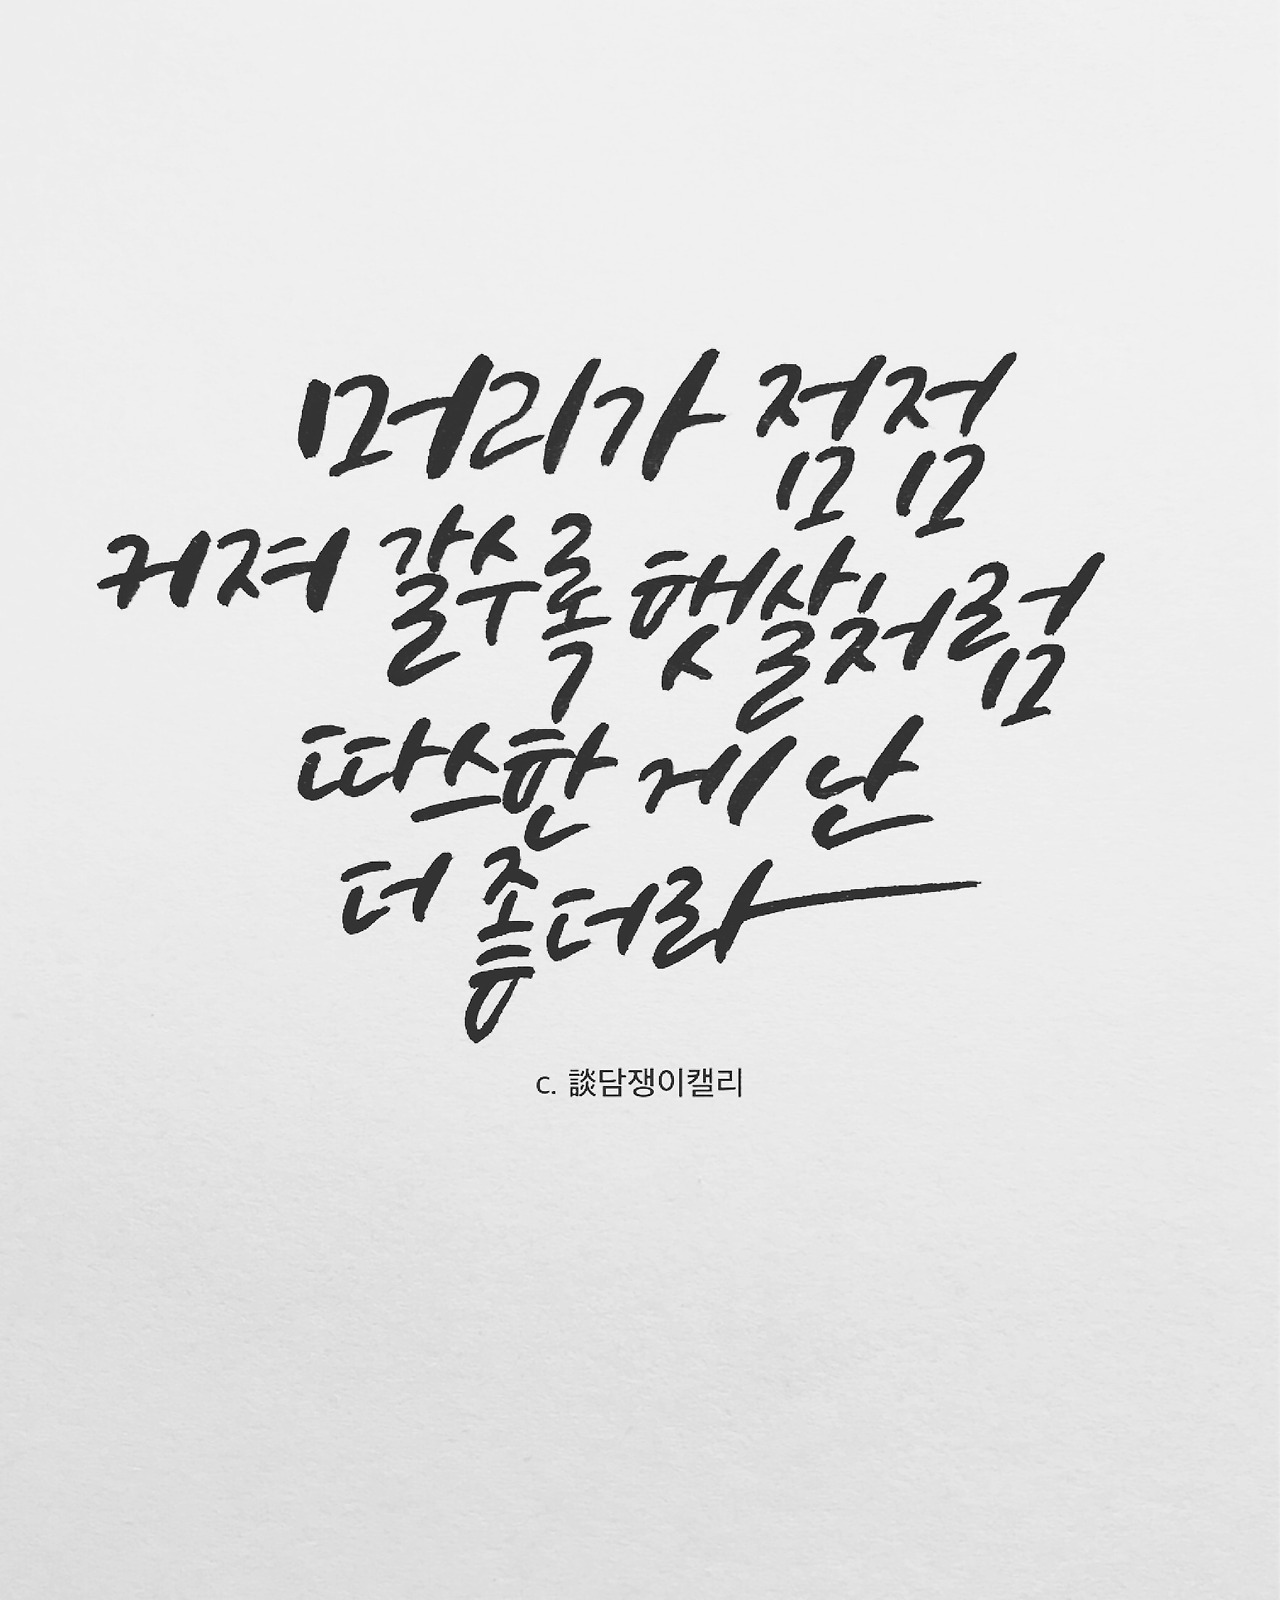 머리가 점점
커져 갈수록 햇살처럼
따스한 게 난
더 좋더라
c. 談담쟁이캘리